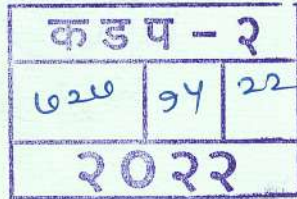 कडप - २
७२७ १५ २२
२०२२